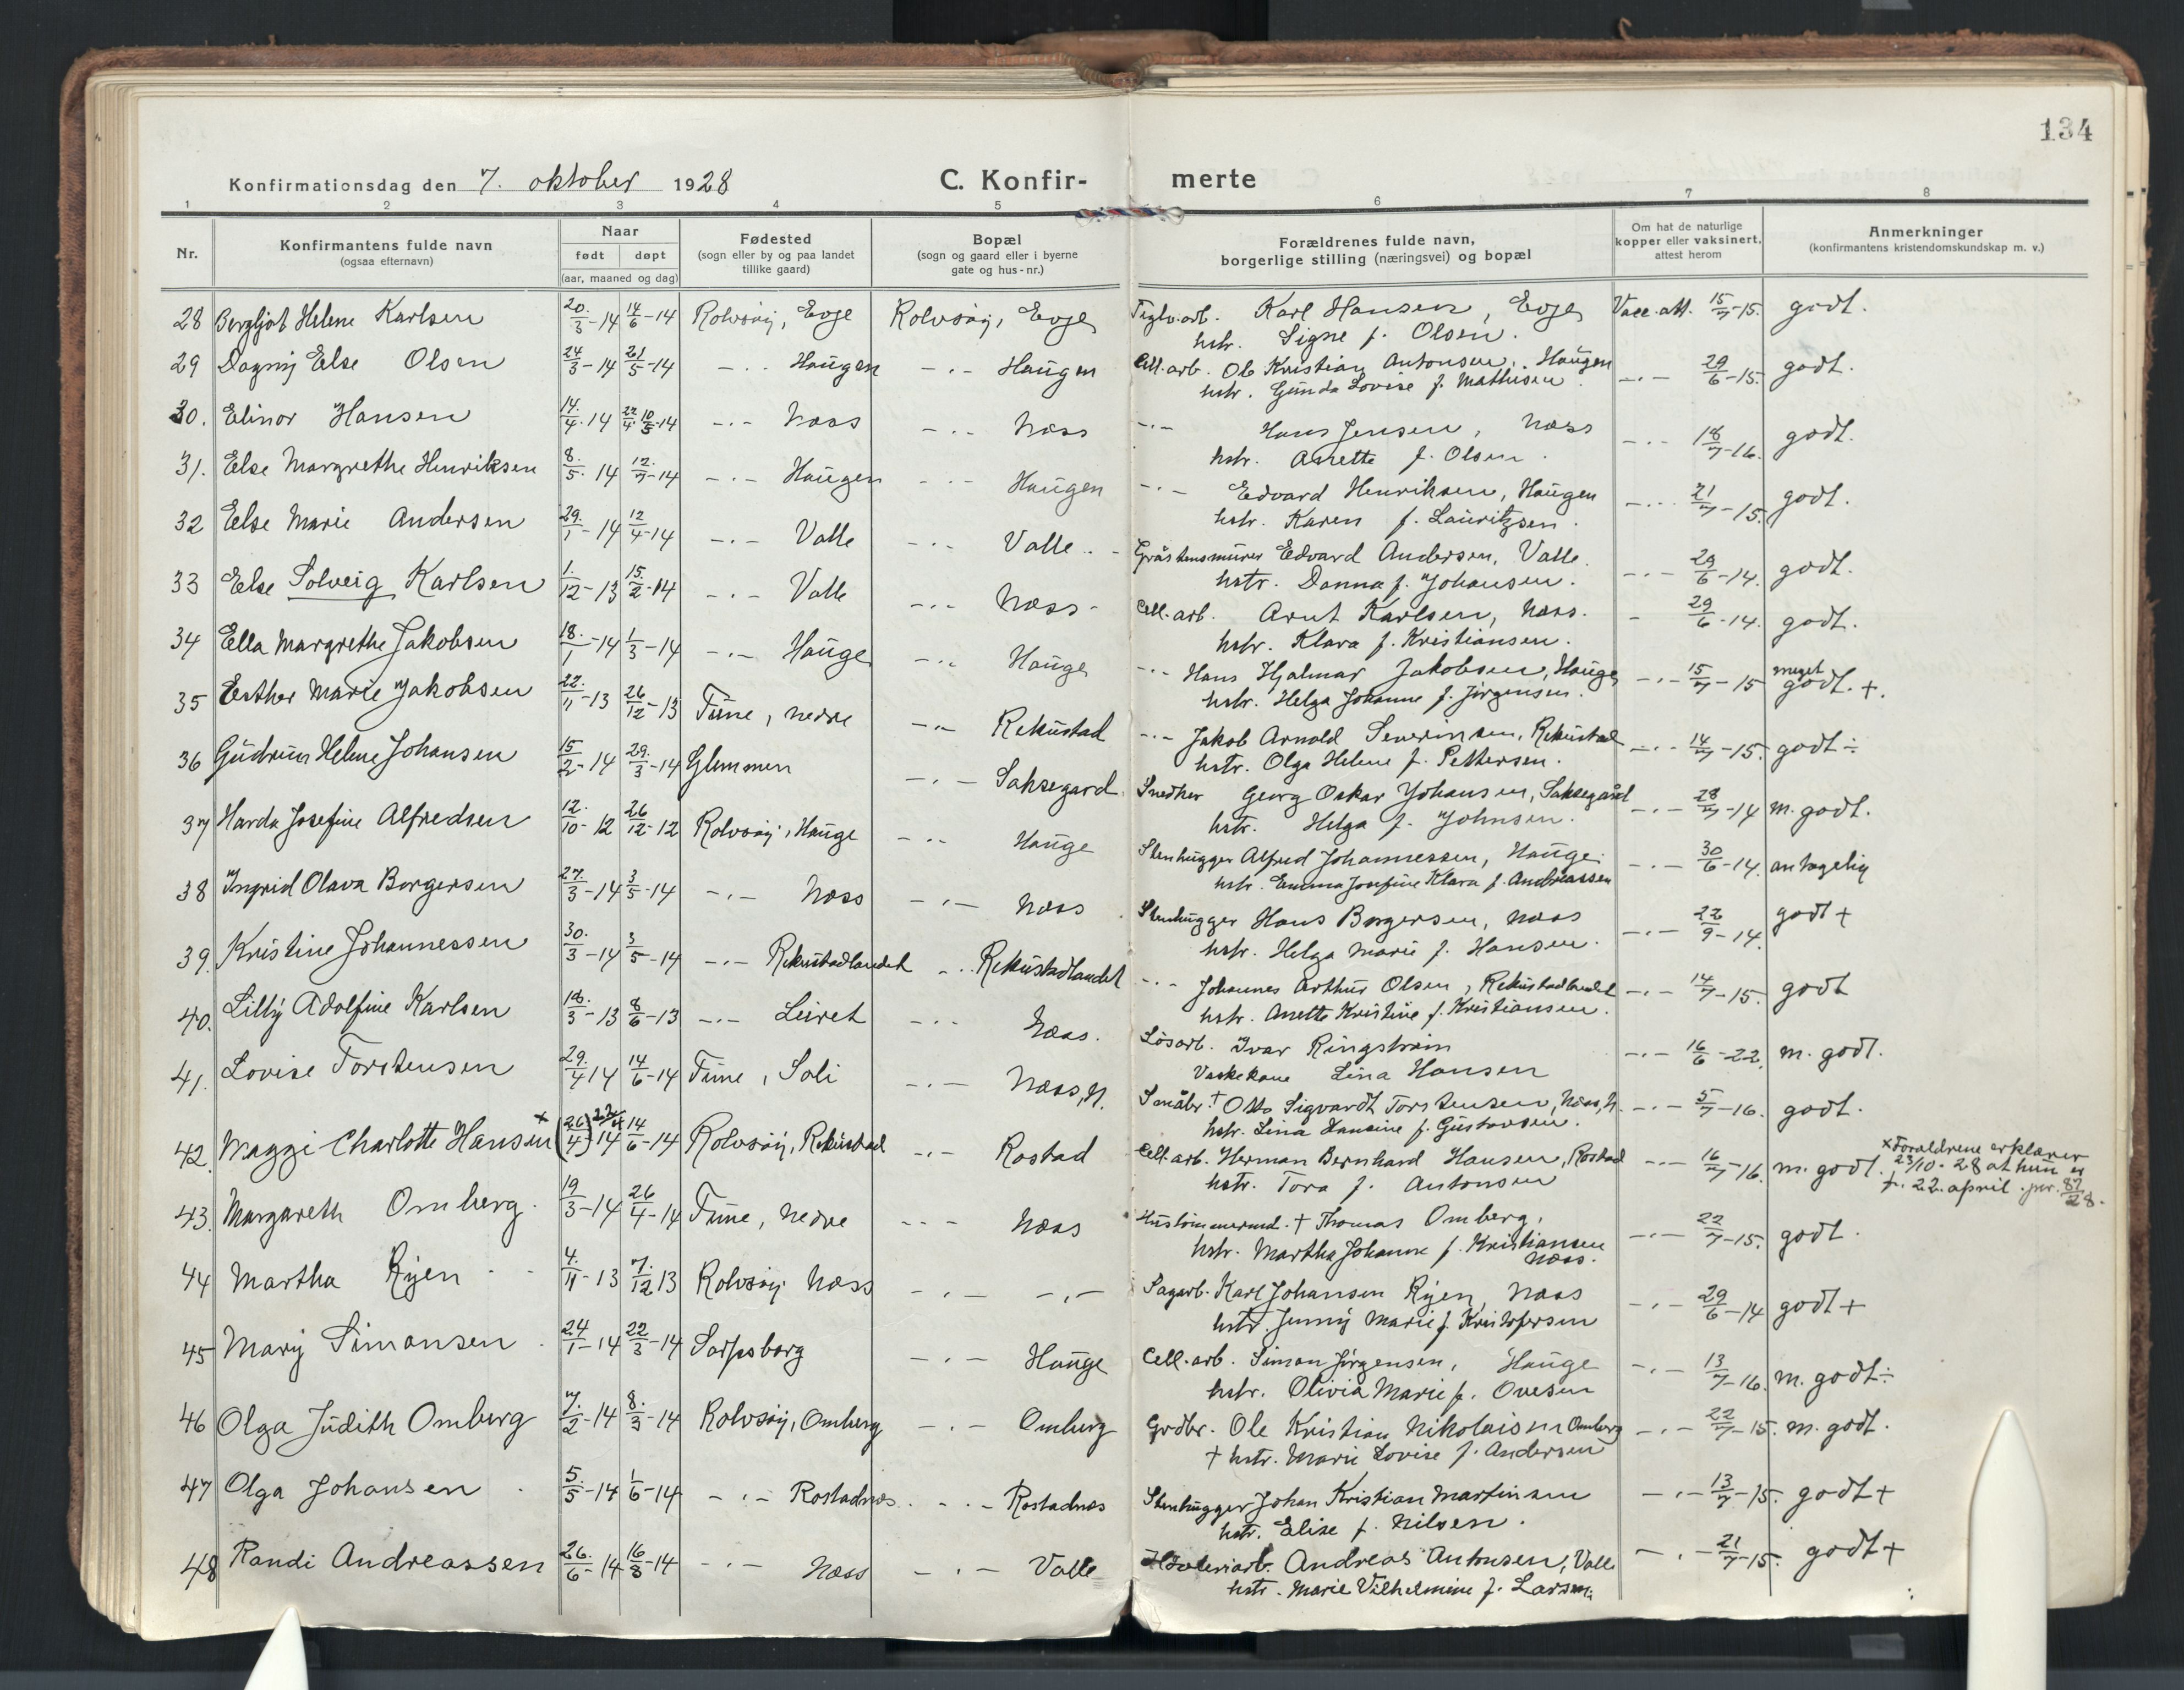 134
Konfirmationsdag den 7. oktober 1928
C. Konfirmerte
1 2 3 4 5 6 7 8
Nr. Konfirmantens fulde navn (ogsaa efternavn) Naar født døpt (aar, maaned og dag) Fødested (sogn eller by og paa landet tillike gaard) Bopæl (sogn og gaard eller i byerne gate og hus-nr.) Forældrenes fulde navn, borgerlige stilling (næringsvei) og bopæl Om hat de naturlige kopper eller vaksinert, attest herom Anmerkninger (konfirmantens kristendomskundskap m. v.)
28 Bergljot Helene Karlsen 20/3-14 14/6-14 Rolvsøy, Evje Rolvsøy, Evje Teglv.arb. Karl Hansen, Evje Vacc.att. 15/7-15. godt.
hstr. Signe f. Olsen.
29 Dagny Else Olsen 24/3-14 21/5-14 -"- Haugen -"- Haugen Cell.arb. Ole Kristian Antonsen, Haugen -"- 29/6-15. godt.
hstr. Gunda Lovise f. Mathisen.
30. Elinor Hansen 14/4-14 10/5-14 -"- Næss -"- Næss -"- Hans Jensen, Næss -"- 18/7-16. godt.
hstr. Anette f. Olsen.
31. Else Margrethe Henriksen 8/5-14 12/7-14 -"- Haugen -"- Haugen -"- Edvard Henriksen, Haugen -"- 21/7-15. godt.
hstr. Karen f. Lauritzsen.
32 Else Marie Andersen 29/1-14 12/4-14 -"- Valle -"- Valle Gråstensmurer Edvard Andersen, Valle. -"- 29/6-14. godt.
hstr. Danna f. Johansen.
33 Else Solveig Karlsen 1/12-13 15/2-14 -"- Valle -"- Næss Cell.arb. Arnt Karlsen, Næss. - 29/6-14. godt.
hstr. Klara f. Kristiansen.
34 Ella Margrethe Jakobsen 18/1-14 1/3-14 -"- Hauge -"- Hauge -"- Hans Hjalmar Jakobsen, Hauge -"- 15/7-15 meget godt. +.
hstr. Helga Johanne f. Jørgensen.
35 Esther Marie Jakobsen 22/11-13 26/12-13 Tune, nedre -"- Rekustad -"- Jakob Arnold Severinsen, Rekustad -"- 14/7-15. godt ÷
hstr. Olga Helene f. Pettersen.
36 Gudrun Helene Johansen 15/2-14 29/3-14 Glemmen -"- Saksegard Snedker Georg Oskar Johansen, Saksegård -"- 28/7-14 m. godt.
hstr. Helga f. Johnsen.
37 Harda Josefine Alfredsen 12/10-12 26/12-12 Rolvsøy, Hauge -"- Hauge Stenhugger Alfred Johannessen, Hauge -"- 30/6-14. antagelig
hstr. Emma Josefine Klara f. Andreassen
38 Ingrid Olava Borgersen 27/3-14 3/5-14 -"- Næss -"- Næss Stenhugger Hans Borgersen, Næss -"- 22/9-14. godt +
hstr. Helga Marie f. Hansen.
39. Kristine Johannessen 30/3-14 3/5-14 -"- Rekustadlandet -"- Rekustadlandet -"- Johannes Arthur Olsen, Rekustadlandet -"- 14/7-15. godt
hstr. Anette Kristine f. Kristiansen.
40. Lilly Adolfine Karlsen 18/3-13 8/6-13 -"- Leiret -"- Næss. Løsarb. Ivar Ringstrøm -"- 16/6-22. m. godt.
Vaskekone Lina Hansen
41. Lovise Torstensen 29/4 14 14/6-14 Tune, Soli -"- Næss, N. Småbr. † Otto Sigvardt Torstensen, Næss, N. -"- 5/7-16. godt.
hstr. Lina Hansine f. Gustavsen.
42. Maggi Charlotte Hansen x (26/4) 22/4 14 14/6-14 Rolvsøy, Rekustad -"- Rostad Cell.arb. Herman Bernhard Hansen, Rostad -"- 16/7-16. m. godt. x Foreldrene erklærer 23/10-28 at hun er f. 22. april. jnr. 87/28.
hstr. Tora f. Antonsen
43. Margareth Omberg. 19/3-14 26/4-14 Tune, nedre -"- Næss Hustømmermd. † Thomas Omberg, -"- 22/7-15. godt.
hstr. Martha Johanne f. Kristiansen Næss.
44 Martha Ryen 4/11-13 7/12 13 Rolvsøy Næss -"- -"- Sagarb. Karl Johansen Ryen, Næss -"- 29/6-14 godt +
hstr. Jenny Marie f. Kristofersen
45 Mary Simonsen 24/1-14 22/3-14 Sarpsborg -"- Hauge Cell.arb. Simon Jørgensen, Hauge -"- 13/7-16. m. godt ÷
hstr. Olivia Marie f. Ovesen
46 Olga Judith Omberg 7/2-14 8/3-14 Rolvsøy, Omberg -"- Omberg Grdbr. Ole Kristian Nikolaisen Omberg -"- 22/7-15. m. godt.
† hstr. Marie Lovise f. Andersen
47 Olga Johansen 5/5-14 1/6-14 -"- Rostadnes -"- Rostadnes Stenhugger Johan Kristian Martinsen -"- 13/7-15. godt +
hstr. Elise f. Nilsen.
48 Randi Andreassen 26/6-14 16/8-14 -"- Næss -"- Valle Andreas Antonsen, Valle -"- 21/7-15. godt +
hstr. Marie Vilhelmine f. Larsen